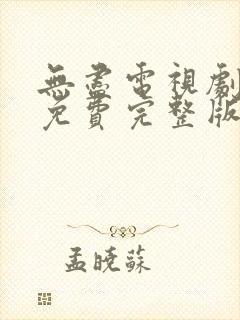 無盡電視劇
免費完整版
孟曉蘇